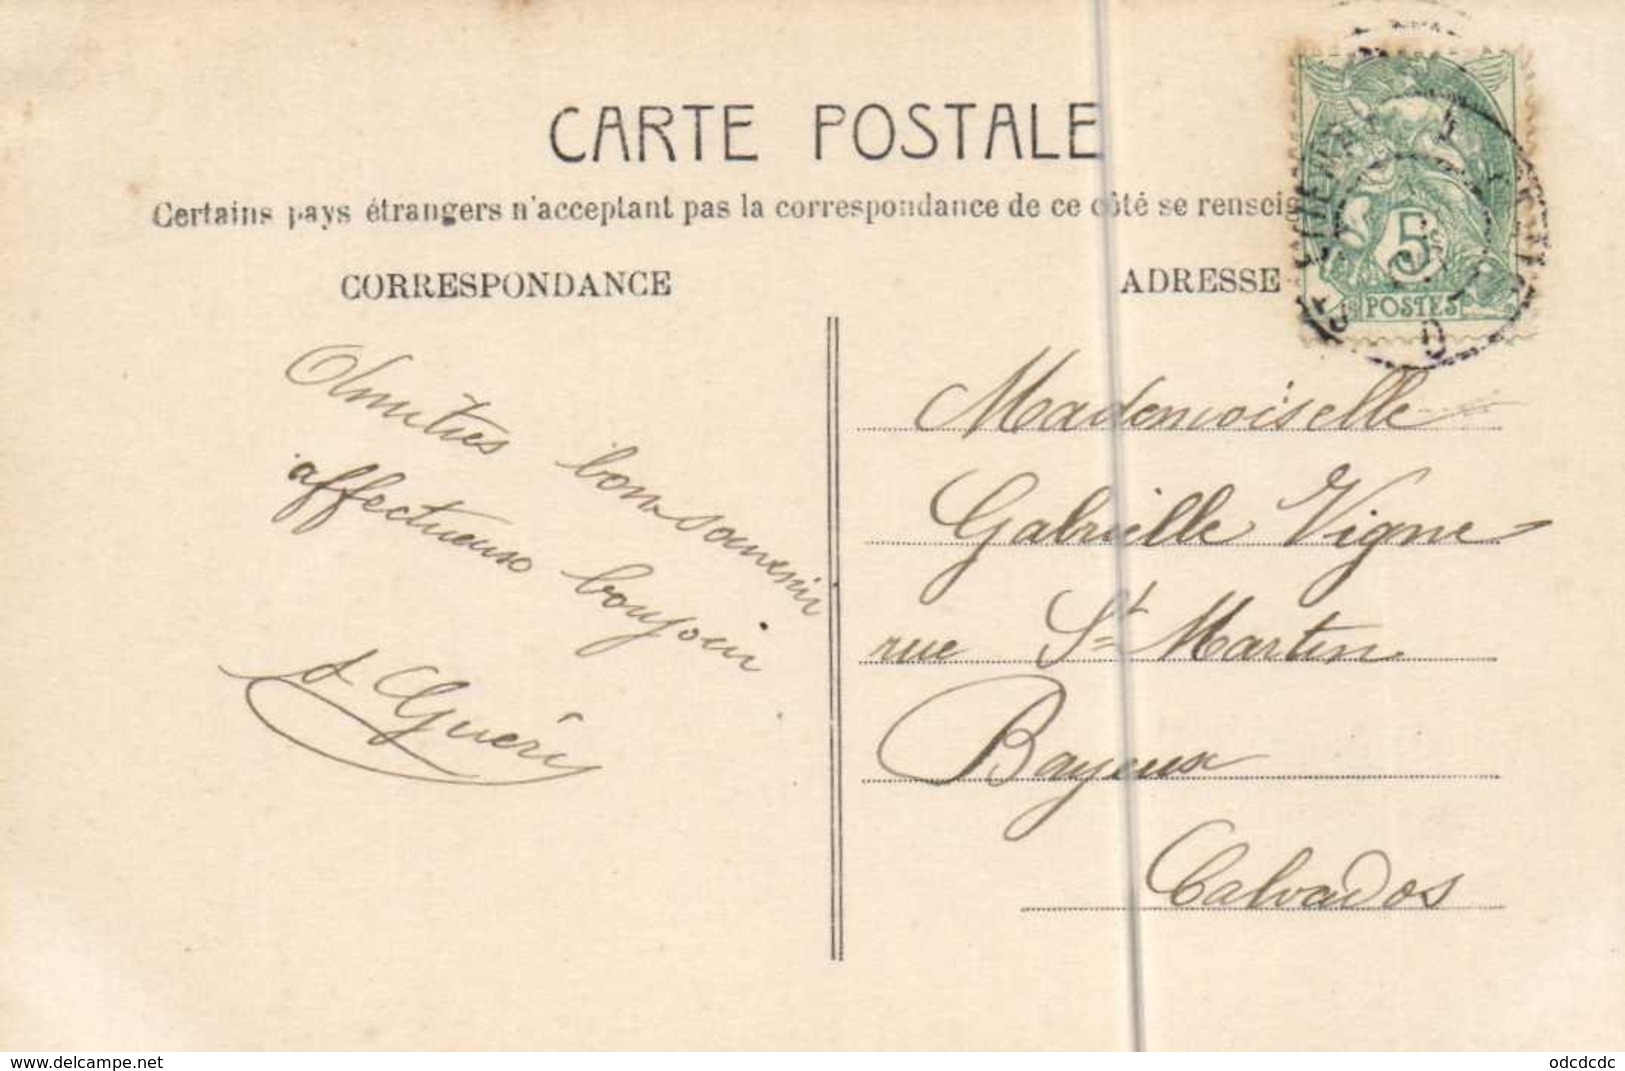 CARTE POSTALE
Certains pays étrangers n'acceptant pas la correspondance de ce côté se renseig
CORRESPONDANCE
ADRESSE
Amitiés bon souvenir
affectueux bonjour
A Guéri
Mademoiselle
Gabrielle Vigne
rue St Martin
Bayeux
Calvados
5
POSTES
delcampe.net
odcdcdc